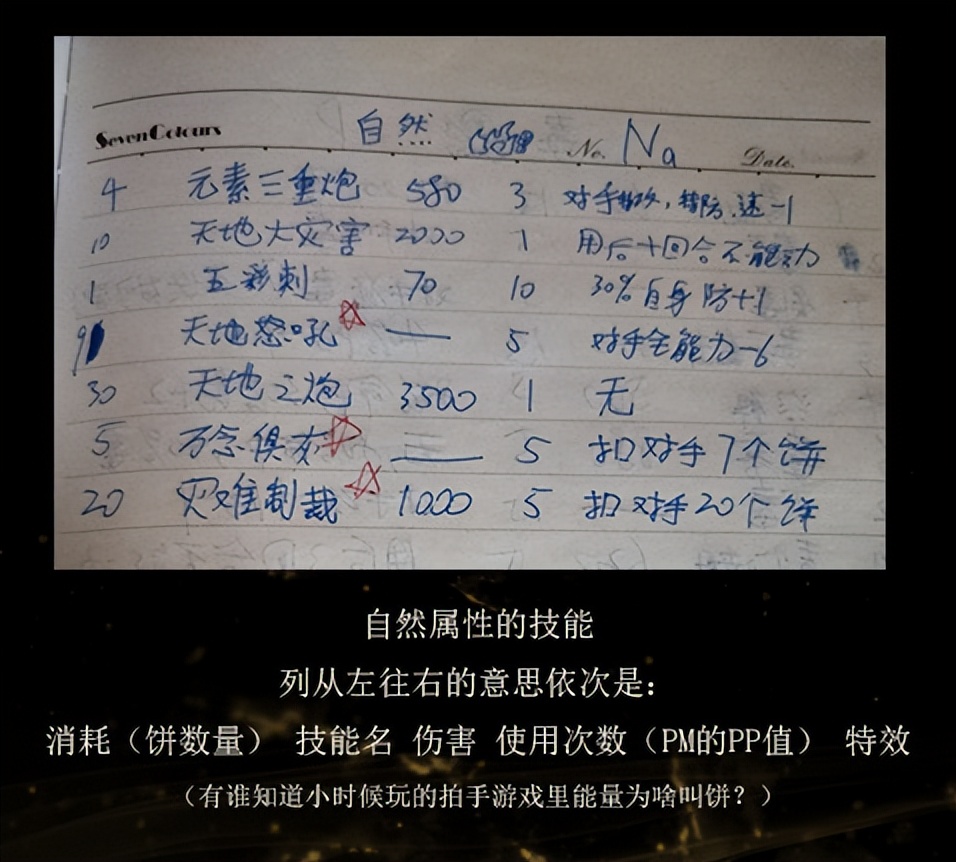 SevenColours 自然 No. Na Date.
4 元素三重炮 580 3 对手特攻,特防,速-1
10 天地大灾害 2000 1 用后十回合不能动
1 五彩刺 70 10 30%自身防+1
9 天地怒吼 — 5 对手全能力-6
30 天地之炮 3500 1 无
5 万念俱灰 — 5 扣对手7个饼
20 灾难制裁 1000 5 扣对手20个饼
自然属性的技能
列从左往右的意思依次是:
消耗(饼数量) 技能名 伤害 使用次数(PM的PP值) 特效
(有谁知道小时候玩的拍手游戏里能量为啥叫饼?)